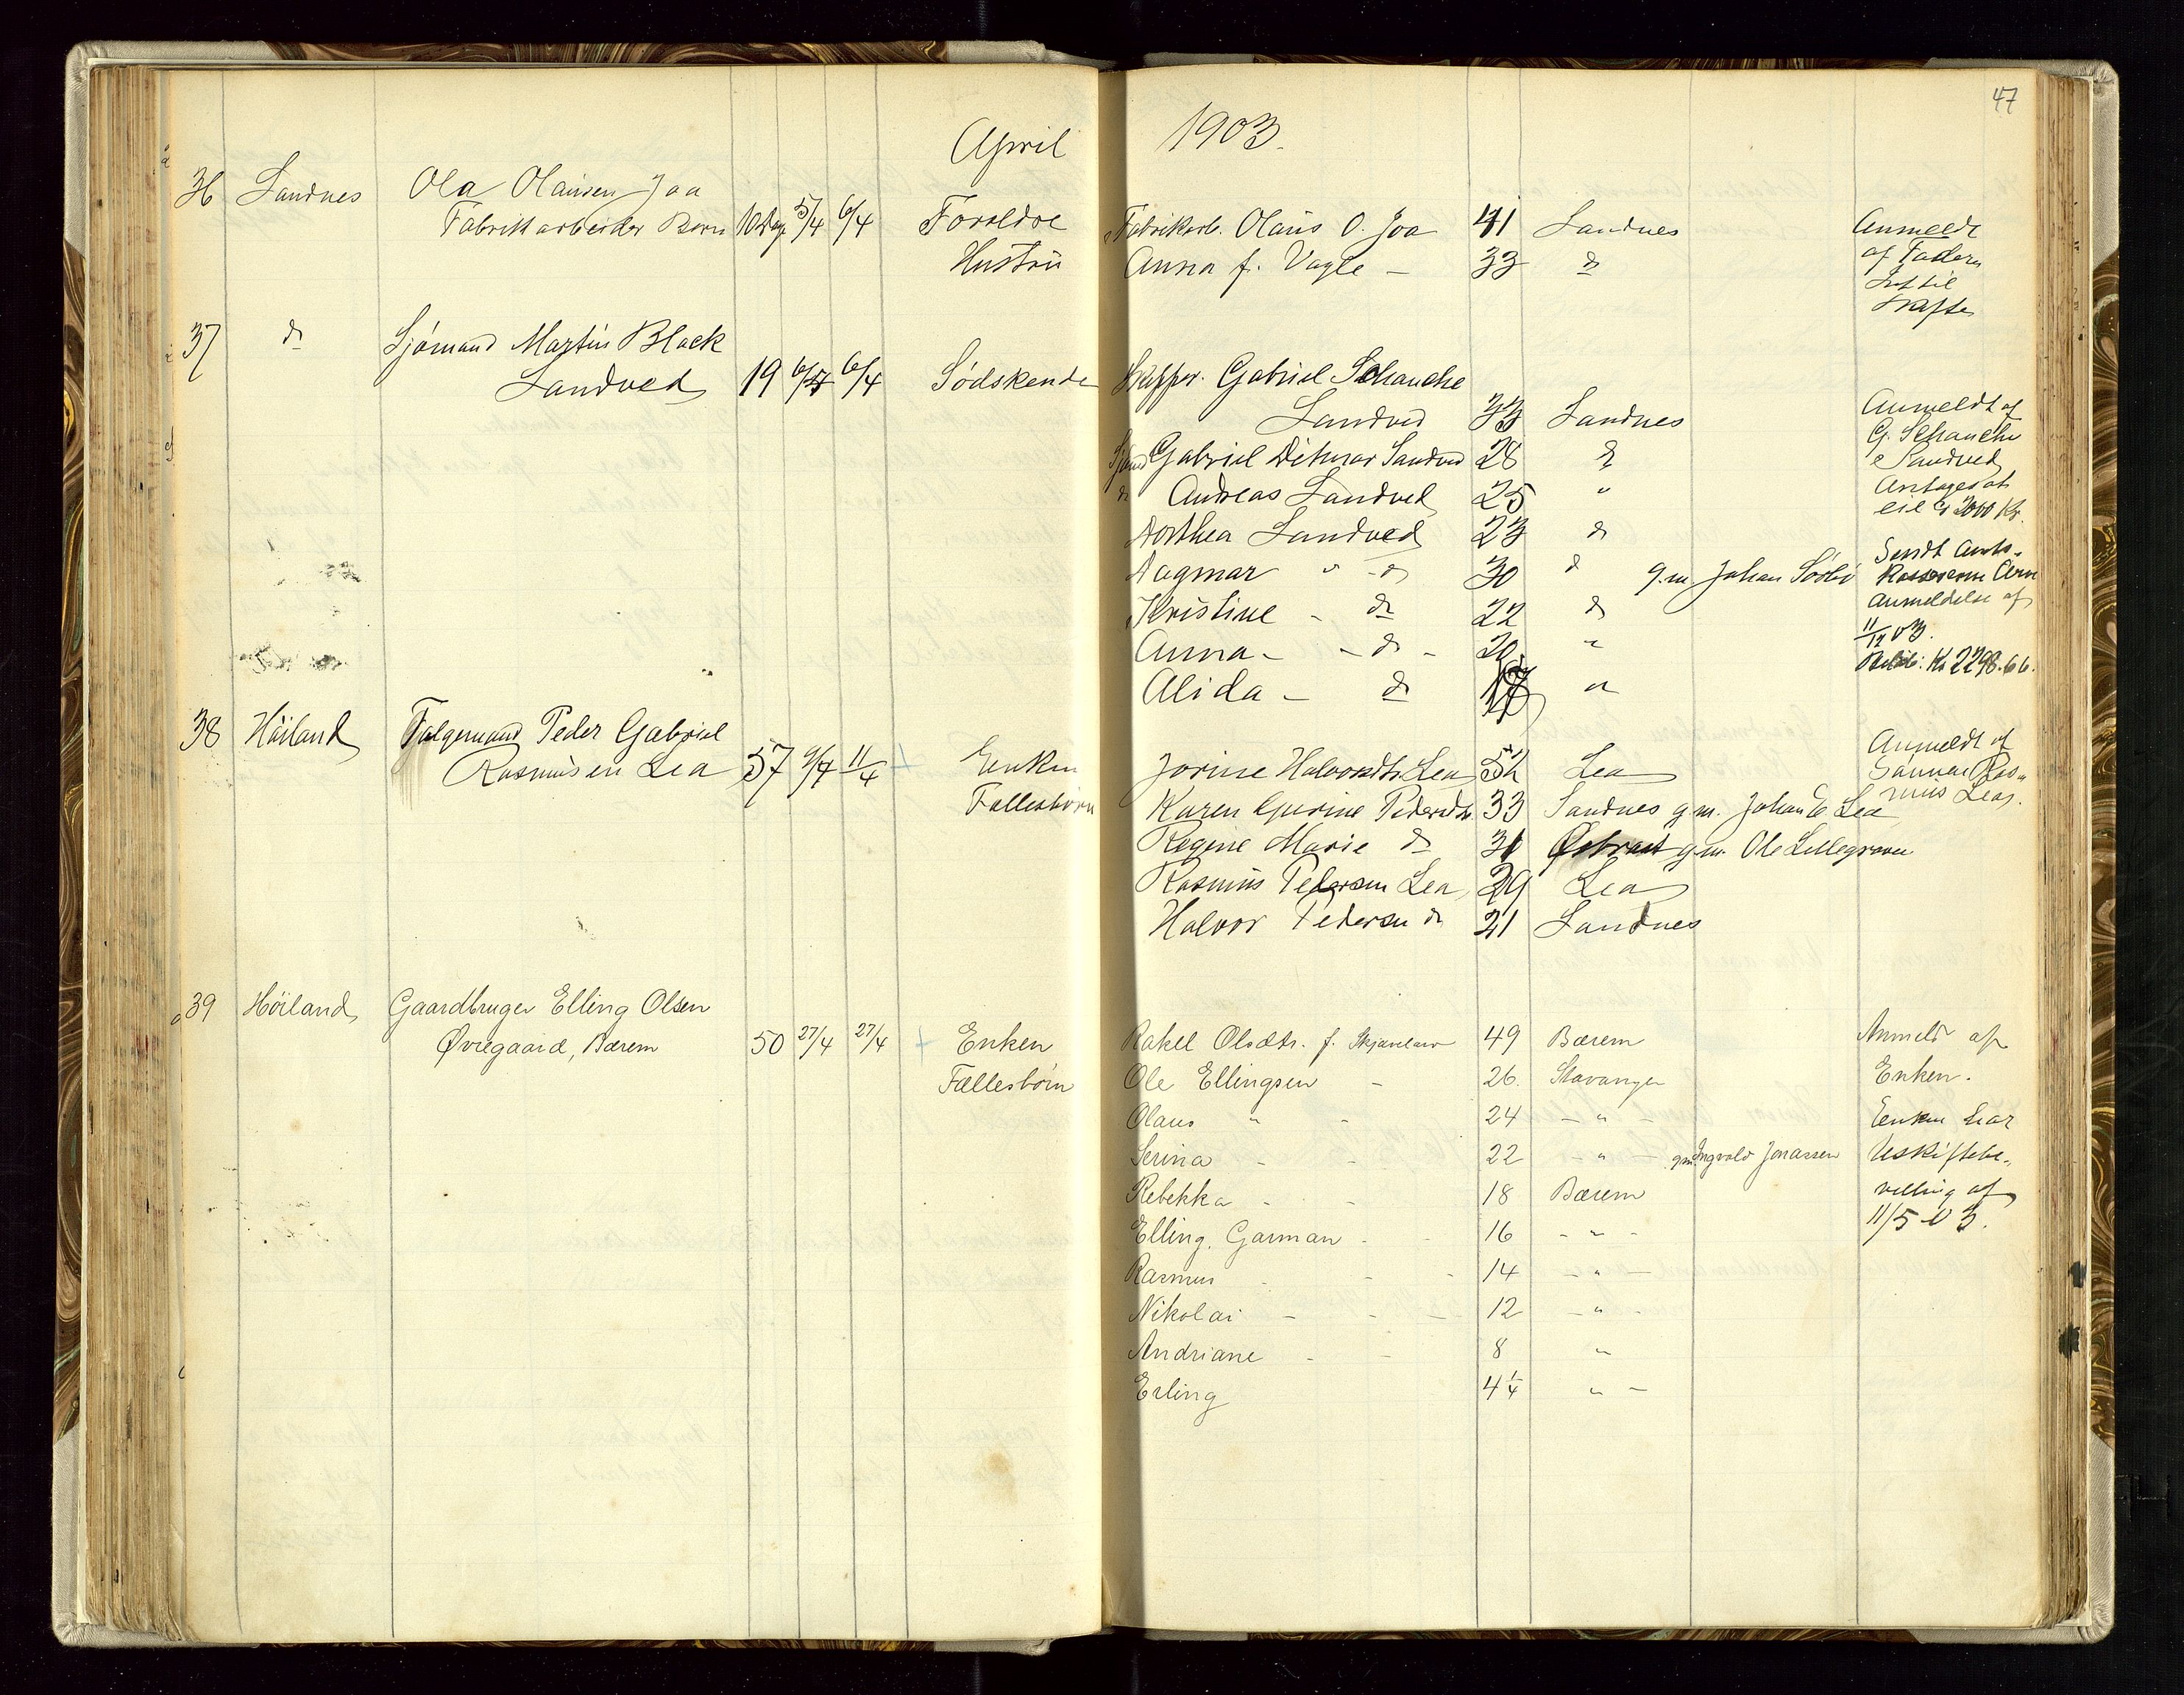 47
April 1903.
36 Sandnes Ola Olausen Joa
Fabrikarbeider Barn 10 Dage 5/4 6/4 Forældre Fabrikarb. Olaus O. Joa 41 Sandnes Anmeldt
Hustru Anna f. Vagle - 33 do af Faderen
Intet til
Skifte
37 do Sjømand Martin Block
Sandved 19 6/4 6/4 Sødskende Skipper Gabriel Schanche
Sandved 33 Sandnes Anmeldt af
G. Schanche
Sjømd Gabriel Ditmar Sandved 28 do Sandved
do Andreas Sandved 25 " Antages at
eie ca 2000 Kr.
Dorthea Sandved 23 do
Sendt Amts-
Dagmar " do 30 do g.m. Johan Sørbø
Kristine - do 22 do Anmeldelse af
11/12 03.
Anna - - do - 20 "
Kr 2298.66.
Alida - do "
38 Høiland Folgemand Peder Gabriel Anmeldt af
Rasmusen Lea 57 9/4 11/4 + Enken Jorine Halvorsdtr Lea 52 Lea Sønnen Ras-
mus Lea.
Fællesbørn Karen Gurine Pedersdtr. 33 Sandnes g.m. Johan E Lea
Regine Marie do 31 Østraat g.m. Ole Lillegraven
Rasmus Pedersen Lea 29 Lea
Halvor Pedersen do 21 Sandnes
39 Høiland Gaardbruger Elling Olsen
Øvregaard, Bærem 50 27/4 27/4 + Enken Rakel Olsdtr. f. Skjæveland 49 Bærem Anmeldt af
Fællesbørn Ole Ellingsen - 26. Stavanger Enken.
Olaus " - 24 - " - Enken har
Serina - - 22 - " - g.m. Ingvald Jonassen Uskiftebe-
Rebekka - - 18 Bærem villing af
Elling Garman - - 16 - " - 11/5 03.
Rasmus - - - 14 - " -
Nikolai - - - 12 - " -
Andriane - - 8 "
Erling 4 1/4 " -